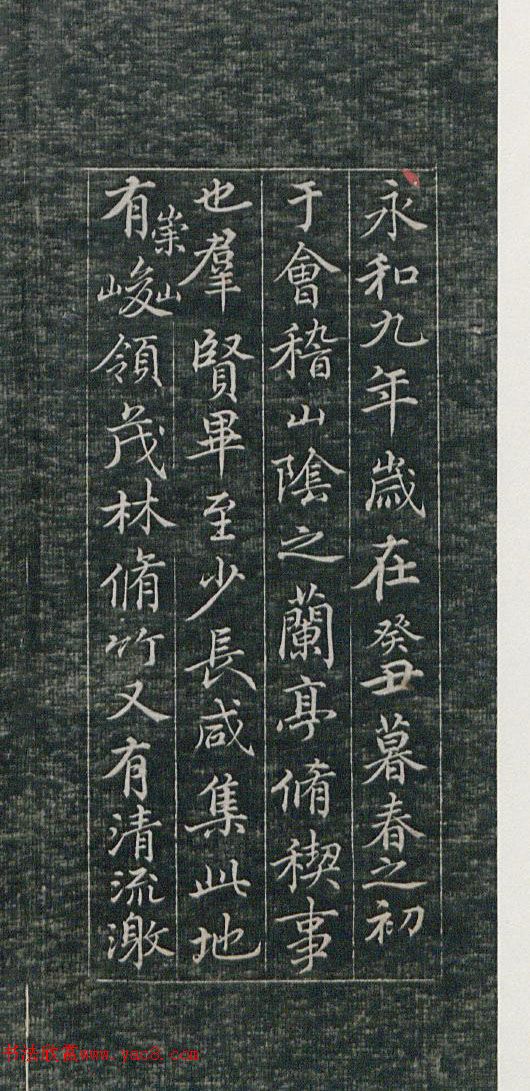 永和九年歲在癸丑暮春之初
于會稽山陰之蘭亭脩稧事
也羣賢畢至少長咸集此地
有崇山峻領茂林脩竹又有清流激
书法收藏www.yac8.com